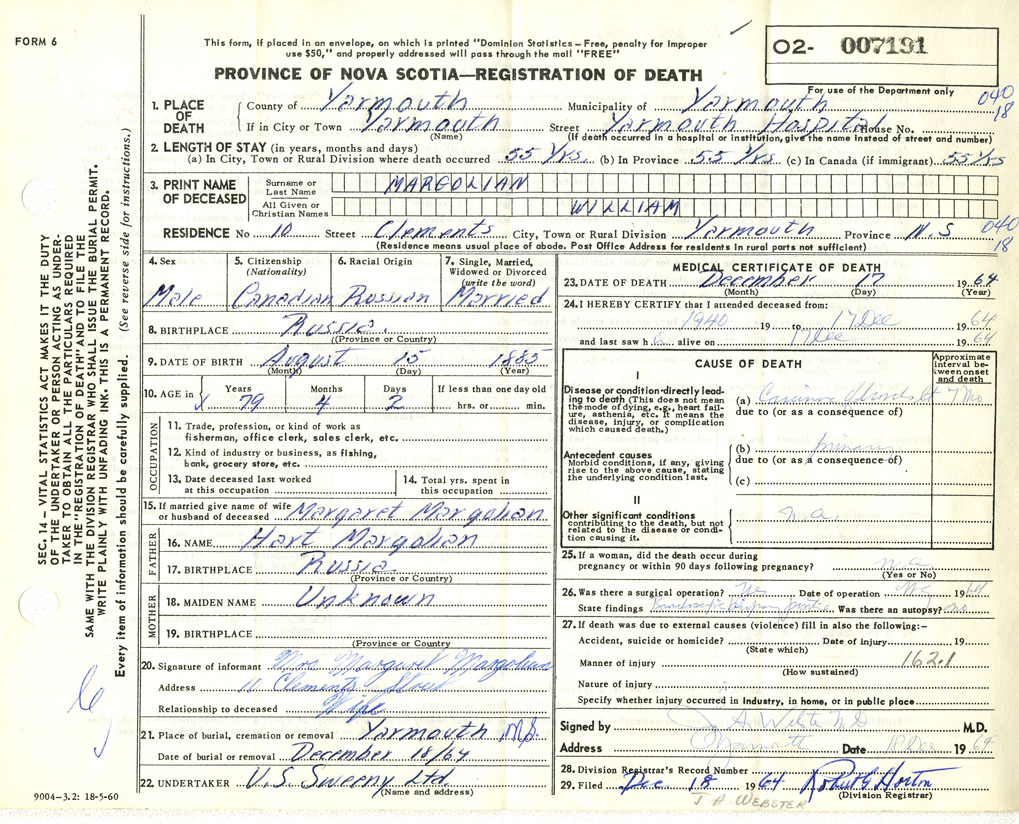 FORM 6
This form, if placed in an envelope, on which is printed "Dominion Statistics – Free, penalty for improper
use $50," and properly addressed will pass through the mail "FREE"
02- 007191
For use of the Department only
PROVINCE OF NOVA SCOTIA—REGISTRATION OF DEATH
040
18
1. PLACE OF DEATH
County of Yarmouth Municipality of Yarmouth
If in City or Town Yarmouth Street Yarmouth Hospital House No.
(Name) (If death occurred in a hospital or institution, give the name instead of street and number)
2. LENGTH OF STAY (in years, months and days)
(a) In City, Town or Rural Division where death occurred 55 Yrs. (b) In Province 55 Yrs (c) In Canada (if immigrant) 55 Yrs
3. PRINT NAME OF DECEASED
Surname or Last Name MARGOLIAN
All Given or Christian Names WILLIAM
RESIDENCE No 10 Street Clements City, Town or Rural Division Yarmouth Province N.S
(Residence means usual place of abode. Post Office Address for residents in rural parts not sufficient)
040
18
4. Sex 5. Citizenship (Nationality) 6. Racial Origin 7. Single, Married, Widowed or Divorced (write the word)
Male Canadian Russian Married
8. BIRTHPLACE Russia.
(Province or Country)
9. DATE OF BIRTH August 15 1885
(Month) (Day) (Year)
10. AGE in Years Months Days If less than one day old
79 4 2 hrs. or min.
OCCUPATION
11. Trade, profession, or kind of work as
fisherman, office clerk, sales clerk, etc.
12. Kind of industry or business, as fishing,
bank, grocery store, etc.
13. Date deceased last worked
at this occupation
14. Total yrs. spent in
this occupation
15. If married give name of wife
or husband of deceased Margaret Margolian
FATHER
16. NAME Hart Margolian
17. BIRTHPLACE Russia
(Province or Country)
MOTHER
18. MAIDEN NAME Unknown
19. BIRTHPLACE
(Province or Country)
20. Signature of informant Mrs Margaret Margolian
Address 10 Clements Street
Relationship to deceased Wife
21. Place of burial, cremation or removal Yarmouth N.S.
Date of burial or removal December 18/64
22. UNDERTAKER V.S. Sweeny Ltd.
(Name and address)
MEDICAL CERTIFICATE OF DEATH
23. DATE OF DEATH December 17 1964
(Month) (Day) (Year)
24. I HEREBY CERTIFY that I attended deceased from:
1940 19 to 17 Dec 1964
and last saw h alive on 17 Dec 1964
CAUSE OF DEATH
Approximate interval between onset and death
I
Disease or condition directly leading to death (This does not mean the mode of dying, e.g., heart failure, asthenia, etc. It means the disease, injury, or complication which caused death.)
(a) 7 Mo
due to (or as a consequence of)
Antecedent causes
Morbid conditions, if any, giving rise to the above cause, stating the underlying condition last.
(b) primary
due to (or as a consequence of)
(c)
II
Other significant conditions
contributing to the death, but not related to the disease or condition causing it.
n.a.
25. If a woman, did the death occur during
pregnancy or within 90 days following pregnancy? n.a
(Yes or No)
26. Was there a surgical operation? Date of operation 1964
State findings Was there an autopsy? no
27. If death was due to external causes (violence) fill in also the following:–
Accident, suicide or homicide? Date of injury 19
(State which)
Manner of injury 162.1
(How sustained)
Nature of injury
Specify whether injury occurred in industry, in home, or in public place
Signed by J. A. Webster M.D M.D.
Address Yarmouth Date 18 Dec 1964
28. Division Registrar's Record Number
29. Filed Dec 18 1964 Robert G Horton
(Division Registrar)
J A WEBSTER
SEC. 14 – VITAL STATISTICS ACT MAKES IT THE DUTY
OF THE UNDERTAKER OR PERSON ACTING AS UNDER-
TAKER TO OBTAIN ALL THE PARTICULARS REQUIRED
IN THE "REGISTRATION OF DEATH" AND TO FILE THE
SAME WITH THE DIVISION REGISTRAR WHO SHALL ISSUE THE BURIAL PERMIT.
WRITE PLAINLY WITH UNFADING INK. THIS IS A PERMANENT RECORD.
Every item of information should be carefully supplied. (See reverse side for instructions.)
9004-3.2: 18-5-60